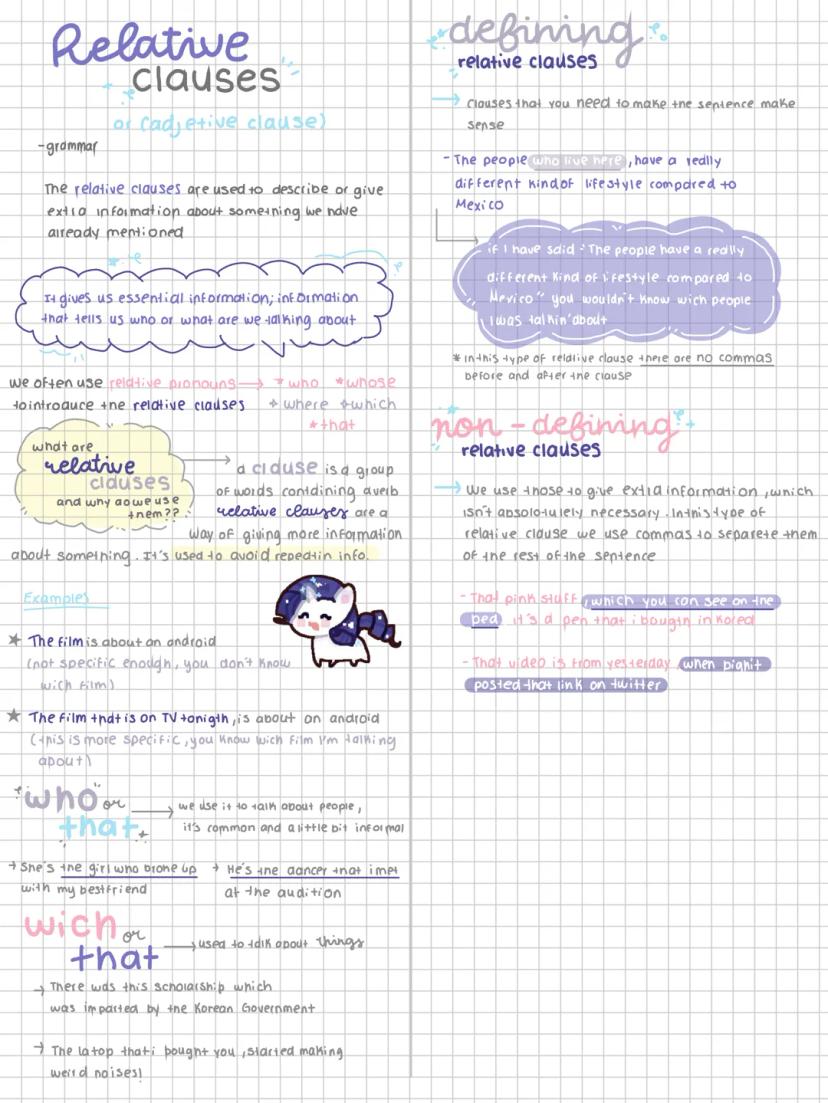 Relative
clauses
or (adjetive clause)
-grammar
The relative clauses are used to describe or give
extra information about something we have
already mentioned
It gives us essential information; information
that tells us who or what are we talking about
we often use relative pronouns → * who * whose
to introduce the relative clauses * where * which
* that
what are
relative
clauses
and why do we use
them??
a clause is a group
of words containing a verb
relative clauses are a
way of giving more information
about something. It's used to avoid repeatin info.
Examples
★ The film is about an android
(not specific enough, you don't know
wich film)
★ The film that is on TV tonigth, is about an android
(this is more specific, you know wich film I'm talking
about)
"who" or
that
→ we use it to talk about people,
it's common and a little bit informal
→ She's the girl who broke up
with my bestfriend
→ He's the dancer that i met
at the audition
wich or
that
→ used to talk about things
→ There was this scholarship which
was imparted by the Korean Government
→ The latop that i bought you, started making
weird noises!
defining
relative clauses
→ Clauses that you need to make the sentence make
sense
- The people who live here, have a really
different kind of lifestyle compared to
Mexico
if I have said: "The people have a really
different kind of lifestyle compared to
Mexico" you wouldn't know wich people
I was talkin' about
* In this type of relative clause there are no commas
before and after the clause
non - defining
relative clauses
→ We use those to give extra information, which
isn't absolutulely necessary. In this type of
relative clause we use commas to separete them
of the rest of the sentence
- That pink stuff, which you can see on the
bed it's a pen that i bougth in Korea
- That video is from yesterday, when bighit
posted that link on twitter